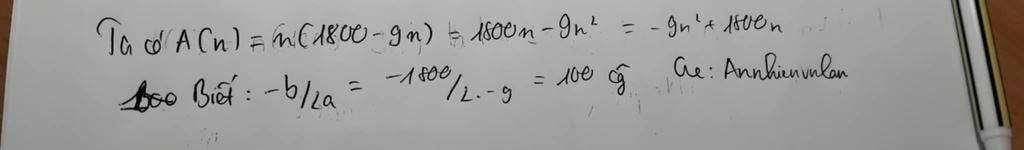 Ta có A(n) = n(1800 - 9n) = 1800n - 9n² = -9n² + 1800n
Biết : -b/2a = -1800/2.-9 = 100 Cr: Annhienvulan